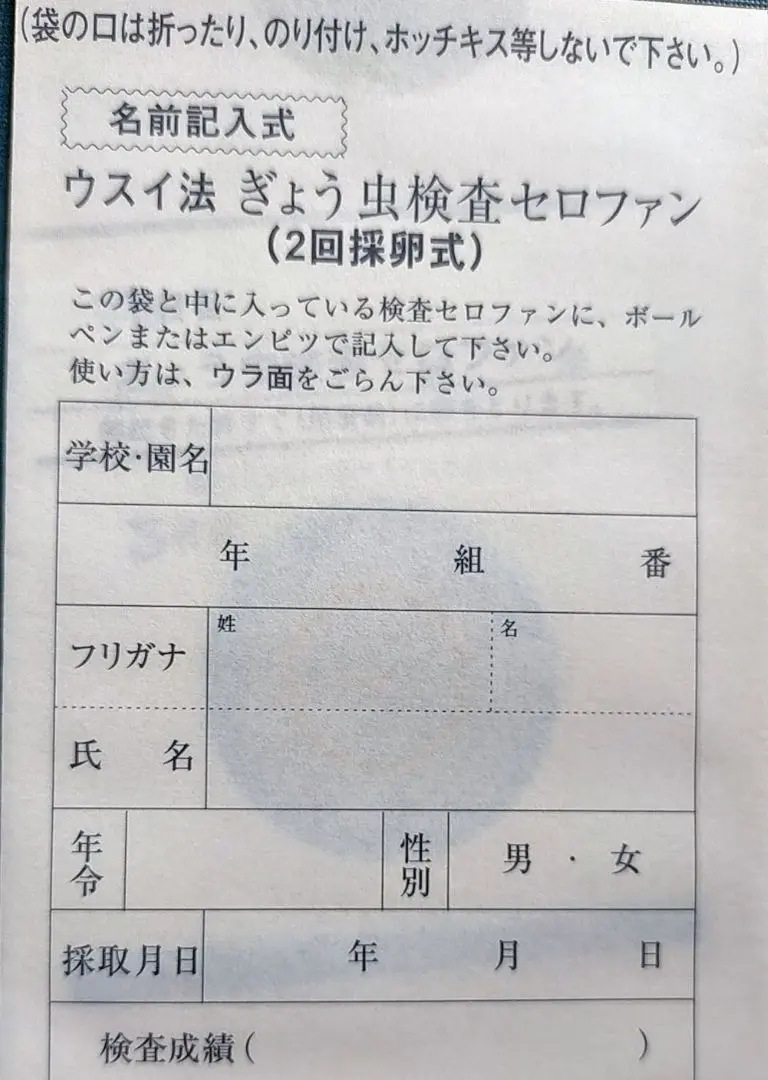 (袋の口は折ったり、のり付け、ホッチキス等しないで下さい。)
名前記入式
ウスイ法 ぎょう虫検査セロファン
(2回採卵式)
この袋と中に入っている検査セロファンに、ボール
ペンまたはエンピツで記入して下さい。
使い方は、ウラ面をごらん下さい。
学校・園名
年 組 番
フリガナ 姓 名
氏 名
年令 性別 男 ・ 女
採取月日 年 月 日
検査成績( )